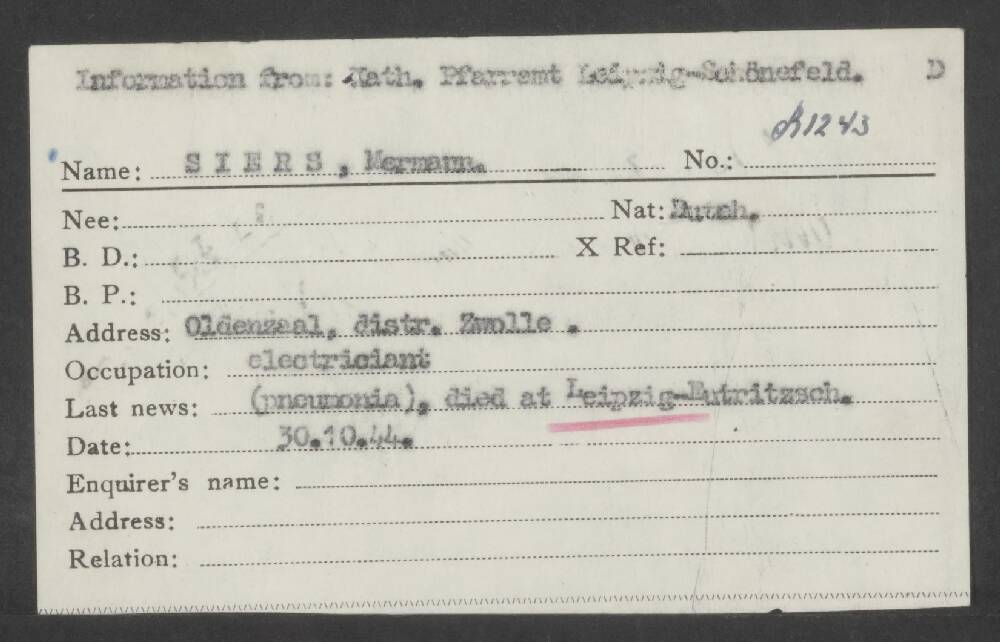 Information from: Kath. Pfarramt Leipzig-Schönefeld. D
Name: SIERS, Hermann. No.:
Nee: Nat: Dutch.
B. D.: X Ref:
B. P.:
Address: Oldenzaal, distr. Zwolle .
Occupation: electriciant
Last news: (pneumonia), died at Leipzig-Eutritzsch.
Date: 30.10.44.
Enquirer's name:
Address:
Relation: